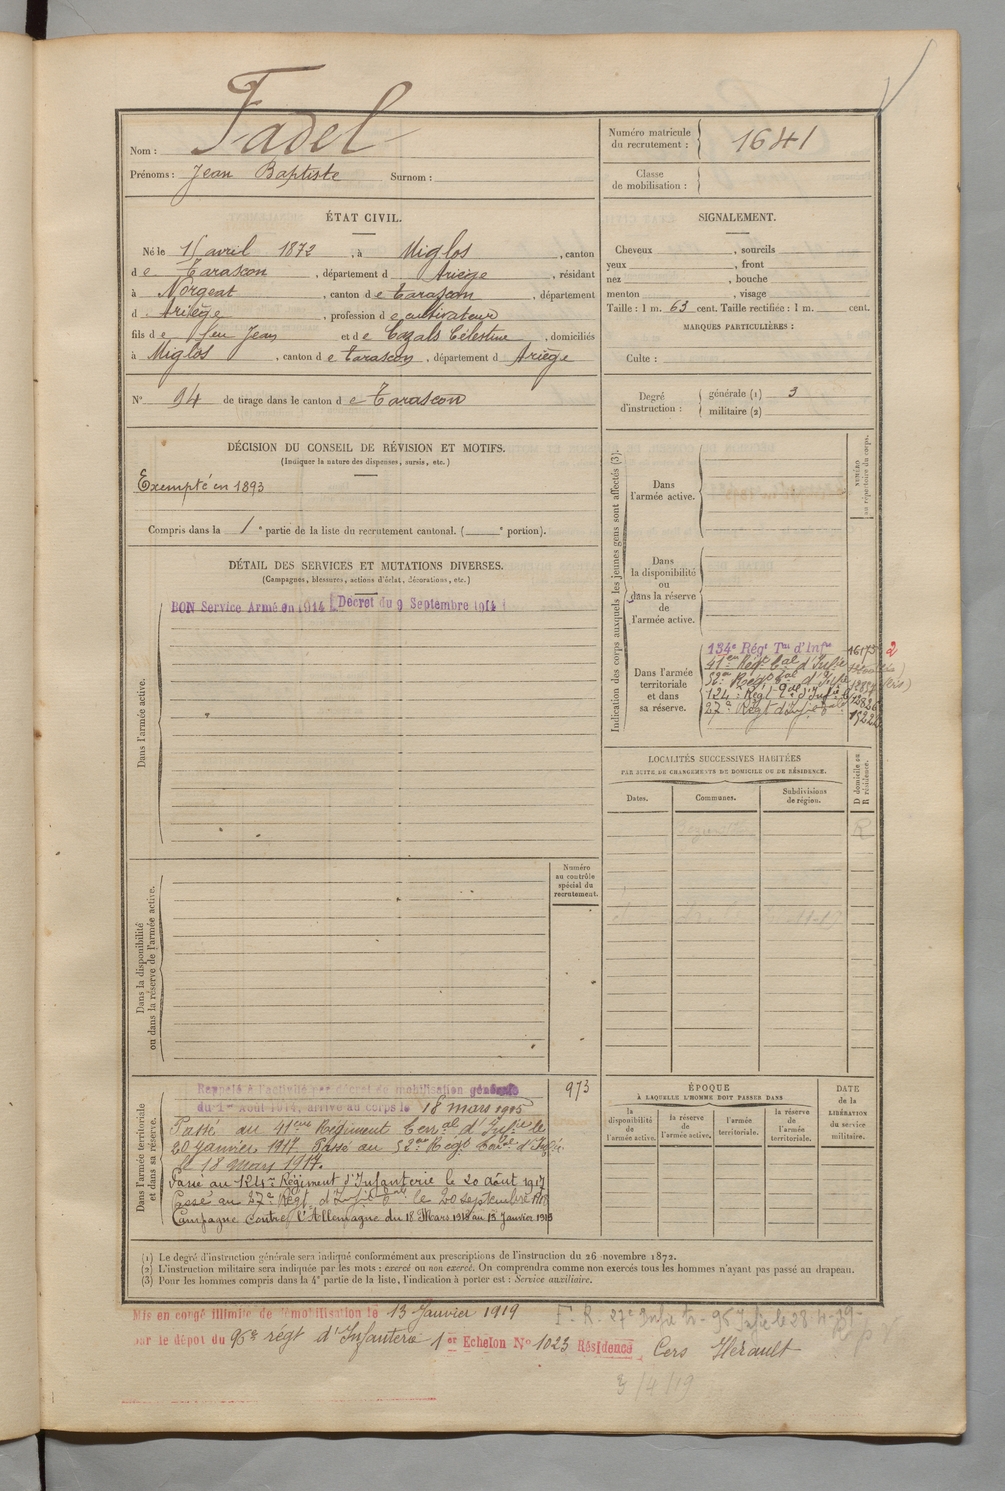 Nom : Fadel
Prénoms : Jean Baptiste Surnom :
Numéro matricule du recrutement : 1641
Classe de mobilisation :
ÉTAT CIVIL.
Né le 15 avril 1872, à Miglos, canton
de Tarascon, département d Ariège, résidant
à Norgeat, canton de Tarascon, département
d Ariège, profession de cultivateur
fils de feu Jean et de Cazals Célestine, domiciliés
à Miglos, canton de Tarascon, département d Ariège
N° 94 de tirage dans le canton de Tarascon
SIGNALEMENT.
Cheveux , sourcils
yeux , front
nez , bouche
menton , visage
Taille : 1 m. 63 cent. Taille rectifiée : 1 m. cent.
MARQUES PARTICULIÈRES :
Culte :
Degré d'instruction : générale (1) 3
militaire (2)
DÉCISION DU CONSEIL DE RÉVISION ET MOTIFS.
(Indiquer la nature des dispenses, sursis, etc.)
Exempté en 1893
Compris dans la 1e partie de la liste du recrutement cantonal. ( e portion).
DÉTAIL DES SERVICES ET MUTATIONS DIVERSES.
(Campagnes, blessures, actions d'éclat, décorations, etc.)
Dans l'armée active.
BON Service Armé en 1914 Décret du 9 Septembre 1914
Indication des corps auxquels les jeunes gens sont affectés (3).
NUMÉRO au répertoire du corps.
Dans l'armée active.
Dans la disponibilité ou dans la réserve de l'armée active.
Dans l'armée territoriale et dans sa réserve.
134e Régt Tal d'Infie 16175 2
41eme Régt Tal d'Infie
52eme Régt Tal d'Infie
124e Régt Tal d'Infie
27e Régt d'Infie Tale
LOCALITÉS SUCCESSIVES HABITÉES
PAR SUITE DE CHANGEMENTS DE DOMICILE OU DE RÉSIDENCE.
Dates. Communes. Subdivisions de région.
D domicile ou R résidence.
R
Dans la disponibilité ou dans la réserve de l'armée active.
Numéro au contrôle spécial du recrutement.
973
Dans l'armée territoriale et dans sa réserve.
Rappelé à l'activité par décret de mobilisation générale
du 1er Août 1914, arrivé au corps le 18 mars 1915
Passé au 41eme Régiment Terral d'Infie le
20 Janvier 1917. Passé au 52eme Régt Terral d'Infie
le 18 Mars 1917.
Passé au 124e Régiment d'Infanterie le 20 août 1917
Passé au 27e Régt d'Infie Tale le 20 septembre
Campagne contre l'Allemagne du 18 Mars 1915 au 13 Janvier 1919
ÉPOQUE
À LAQUELLE L'HOMME DOIT PASSER DANS
la disponibilité de l'armée active.
la réserve de l'armée active.
l'armée territoriale.
la réserve de l'armée territoriale.
DATE de la LIBÉRATION du service militaire.
(1) Le degré d'instruction générale sera indiqué conformément aux prescriptions de l'instruction du 26 novembre 1872.
(2) L'instruction militaire sera indiquée par les mots : exercé ou non exercé. On comprendra comme non exercés tous les hommes n'ayant pas passé au drapeau.
(3) Pour les hommes compris dans la 4e partie de la liste, l'indication à porter est : Service auxiliaire.
Mis en congé illimité de démobilisation le 13 Janvier 1919
par le dépot du 96e régt d'Infanterie 1er Echelon N° 1023 Résidence Cers Hérault
F. R. 27e Infie 96 Infie le 28-4-19
3/4/19